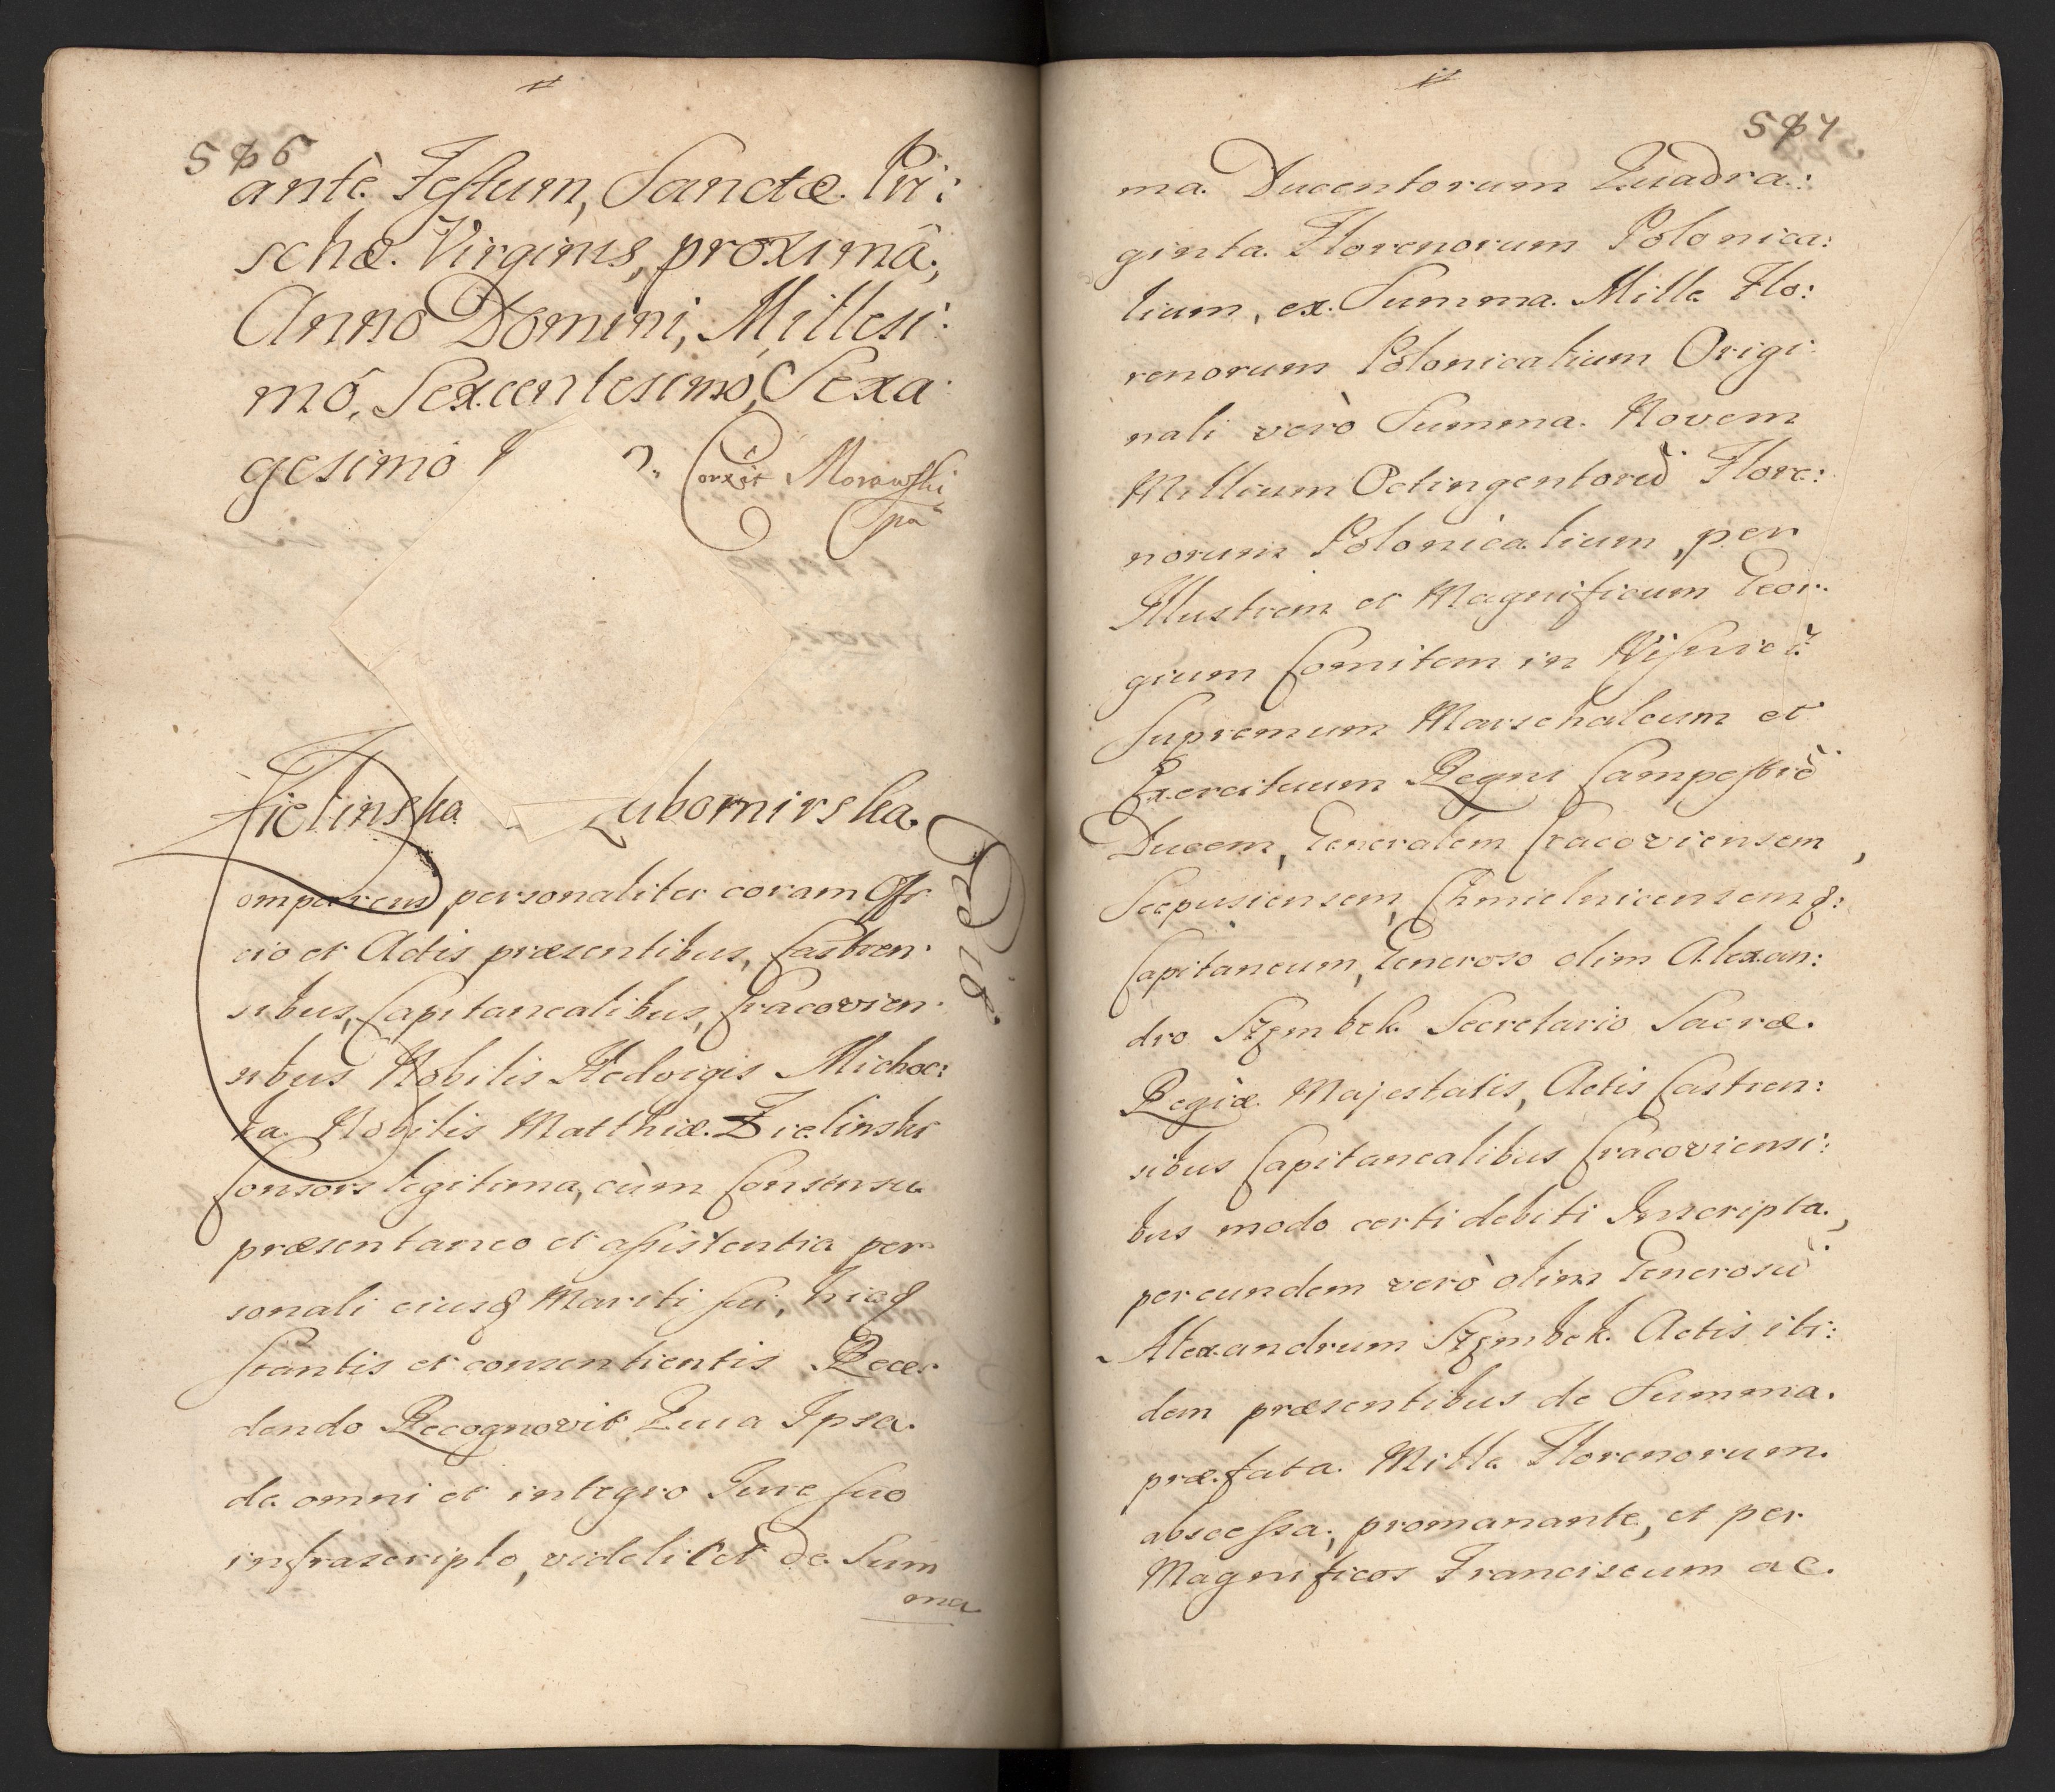 ante Festum, Sanctæ Pri:
schæ Virginis, proximâ,
Anno Domini, Millesi:
mó, Sexcentesimó, Sexa:
gesimó
Corexit Morawski
Zielinska
Lubomirska
omparens personaliter coram Offi
cio et Actis præsentibus, Castren:
sibus, Capitanealibus, Cracovien:
sibus Nobilis Hedvigis Michoc:
ka Nobilis Matthiæ Zielinski
Consors legitima, cùm Consensu
præsentaneo et assistentia per
sonali eiusq Mariti sui, hicq
stantis et consentientis Rece:
dendo Recognovit Quia Ipsa
de omni et integro Jure suo
infrascripto, videlicet de Sum
ma
ma Ducentorum Quadra:
ginta Florenorum Polonica:
lium, ex Summa Mille Flo:
renorum Polonicalium Origi:
nali verò Summa Novem
Millium Octingentorũ Flore:
norum Polonicalium, per
Illustrem et Magnificum Geor:
gium Comitem in Wisnicz
Supremum Marschalcum et
Exercituum Regni Campestrẽ
Ducem, Generalem Cracoviensem,
Scepusiensem, Chmielnicensemq:
Capitaneum, Generoso olim Alexan:
dro Szembek Secretario Sacræ
Regiæ Majestatis, Actis Castren:
sibus Capitanealibus Cracoviensi:
bus modo certi debiti Inscripta,
per eundem verò olim Generosũ
Alexandrum Szembek Actis iti:
dem præsentibus de Summa
præfata Mille Florenorum
abscessa, promanante, et per
Magnificos Franciscum ac